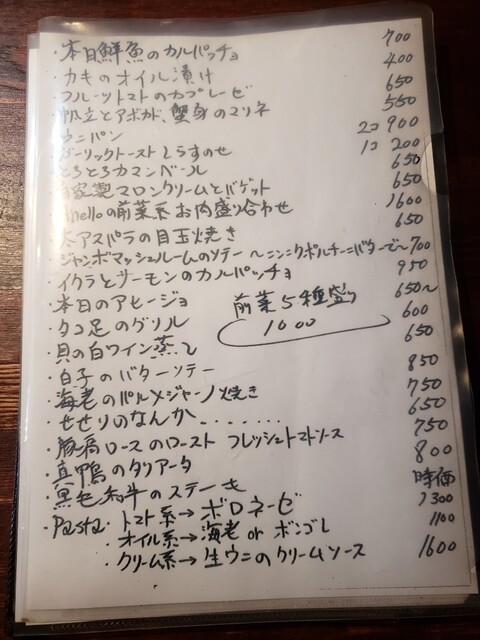 ・本日鮮魚のカルパッチョ 700
・カキのオイル漬け 400
・フルーツトマトのカプレーゼ 650
・帆立とアボカド、蟹身のマリネ 550
・ウニパン 2コ 900
・ガーリックトーストしらすのせ 1コ 200
・とろとろカマンベール 650
・自家製マロンクリームとバゲット 650
helloの前菜系お肉盛り合わせ 1600
・太アスパラの目玉焼き 650
・ジャンボマッシュルームのソテー 〜ニンニクポルチーニバターで〜 700
・イクラとサーモンのカルパッチョ 950
・本日のアヒージョ 650〜
前菜5種盛り
1600
・タコ足のグリル 600
・貝の白ワイン蒸し 650
・白子のバターソテー 850
・海老のパルメジャーノ焼き 750
・せせりのなんか........ 650
・豚肩ロースのロースト フレッシュトマトソース 750
・真鴨のタリアータ 800
・黒毛和牛のステーキ 時価
・Pasta・トマト系→ボロネーゼ 1300
・オイル系→海老 or ボンゴレ 1100
・クリーム系→生ウニのクリームソース 1600